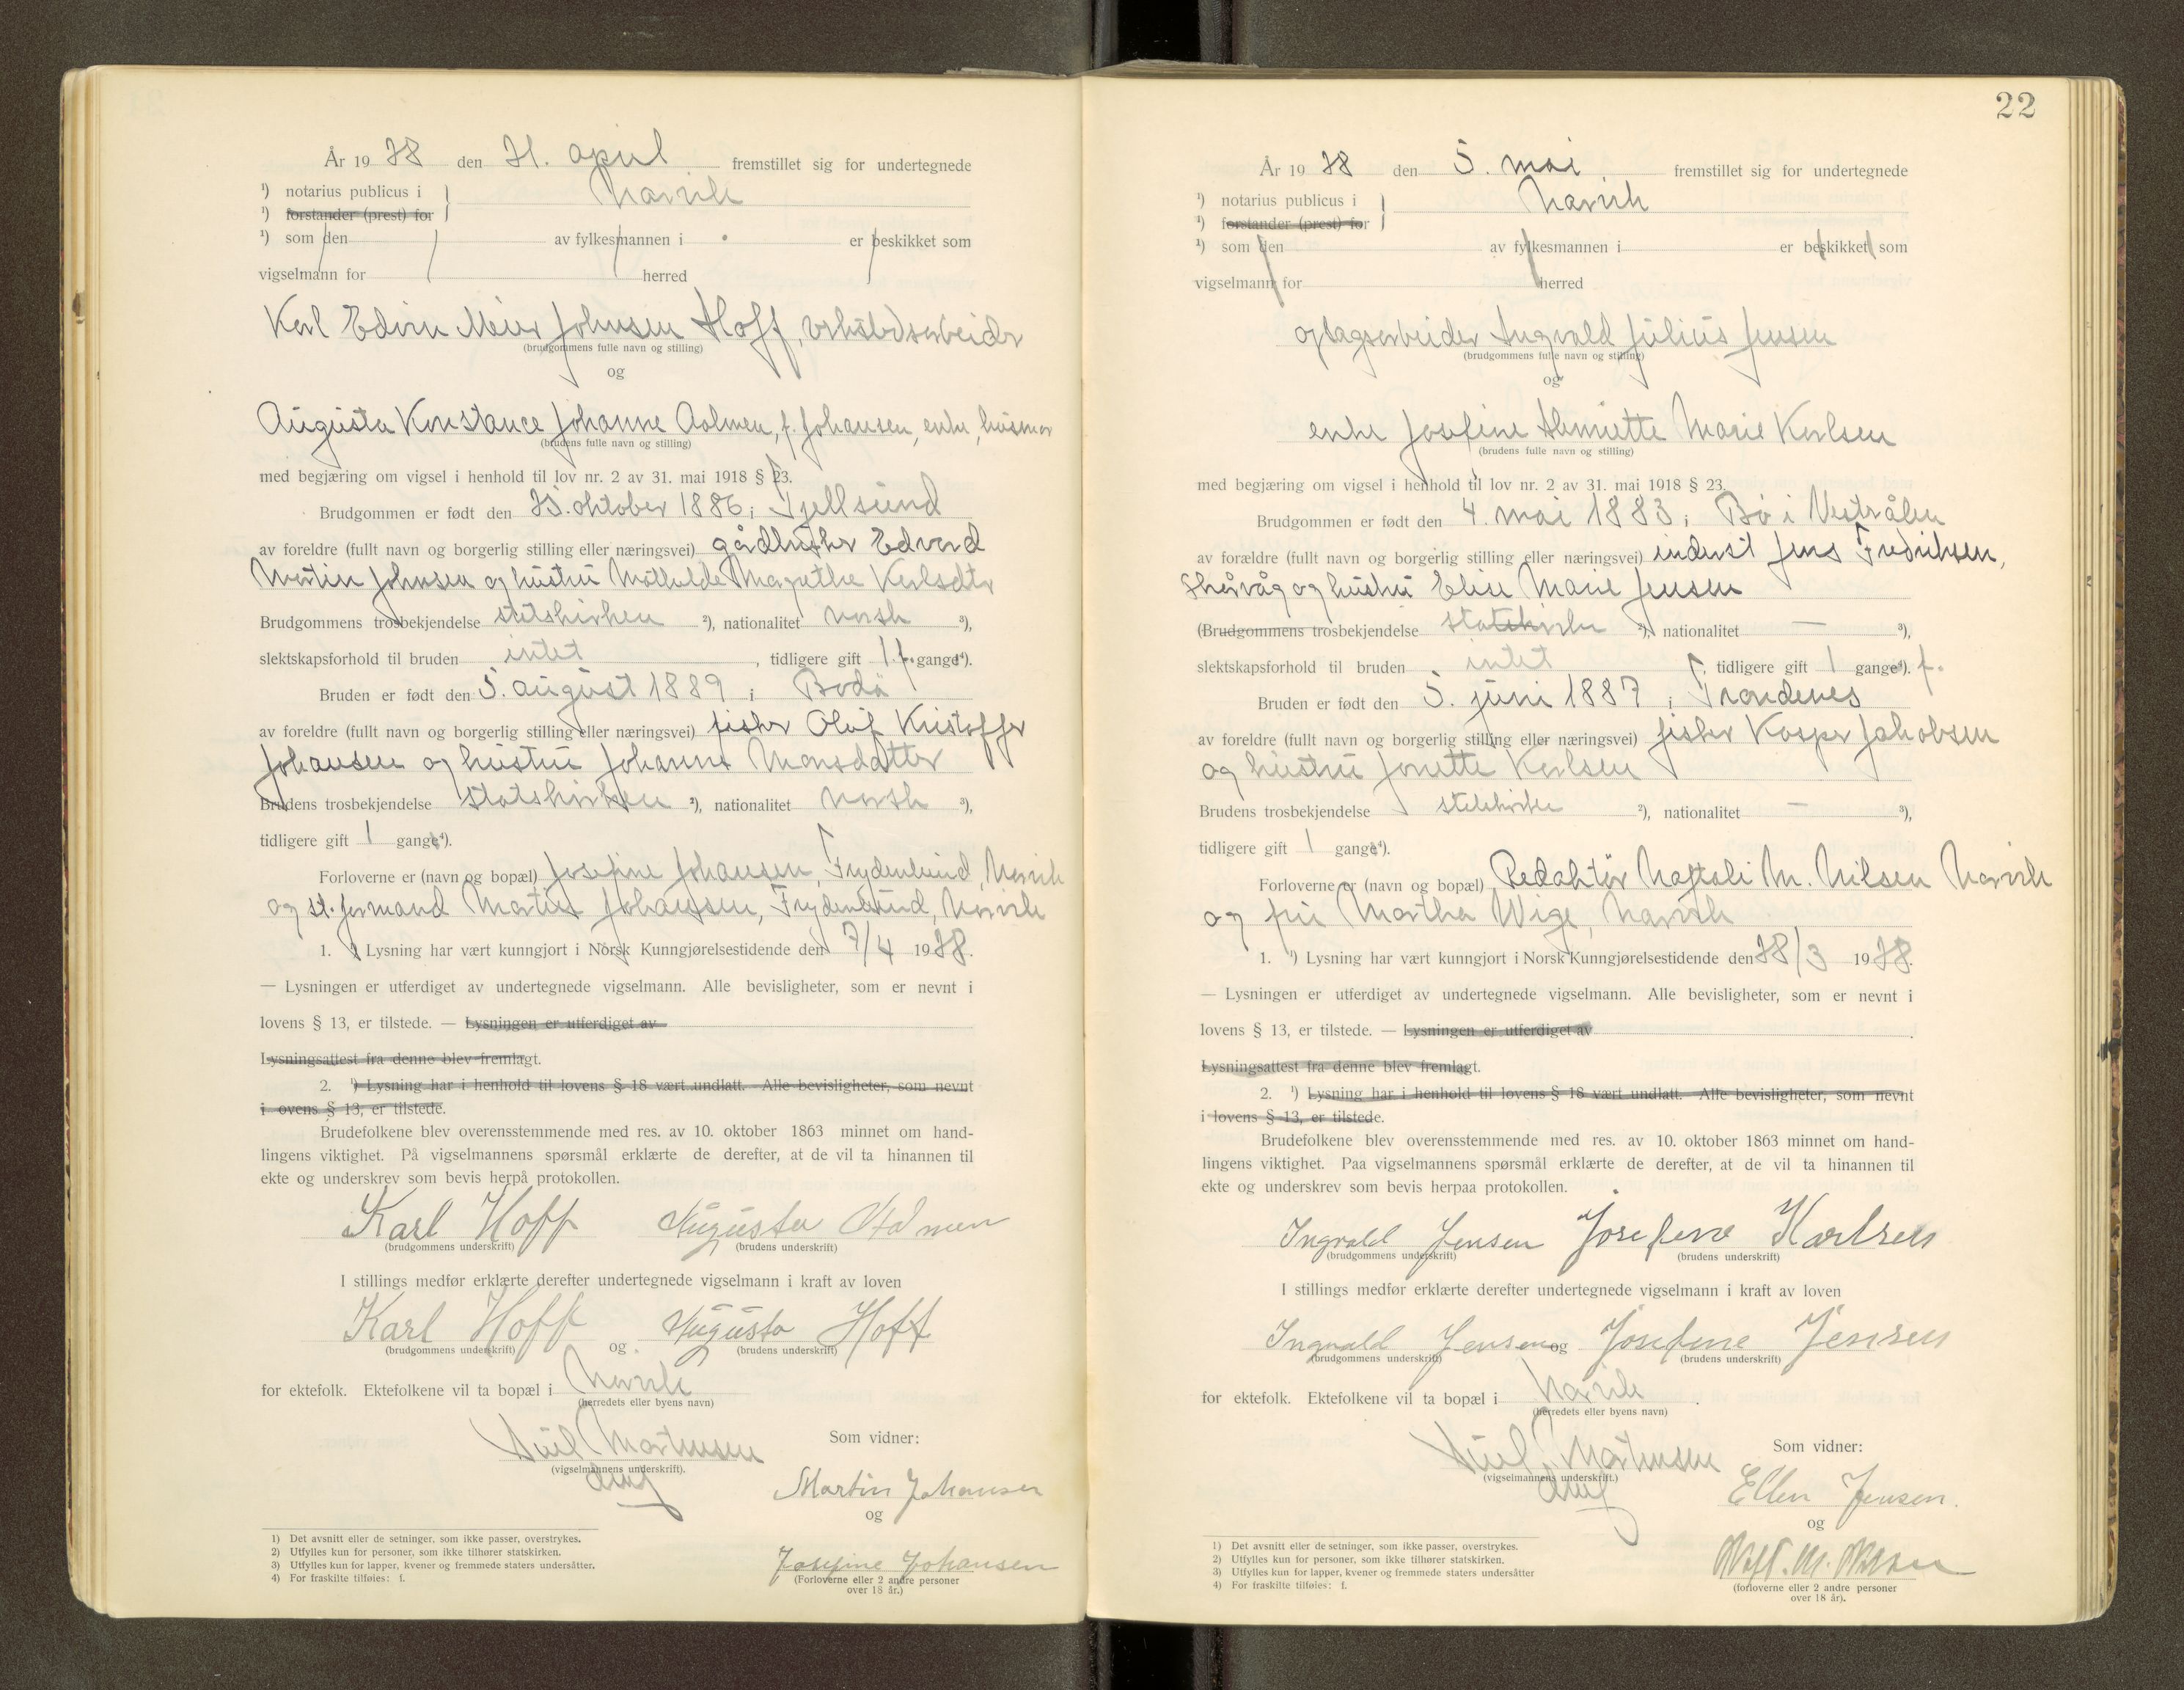 År 1928 den 21. april fremstillet sig for undertegnede
¹) notarius publicus i Narvik
¹) forstander (prest) for
¹) som den av fylkesmannen i er beskikket som
vigselmann for herred
Karl Edvin Meier Johnsen Hoff, verkstedsarbeider
(brudgommens fulle navn og stilling)
og
Augusta Konstance Johanne Aalmen, f. Johansen, enke, husmor
(brudens fulle navn og stilling)
med begjæring om vigsel i henhold til lov nr. 2 av 31. mai 1918 § 23.
Brudgommen er født den 25. oktober 1886 i Tjellsund
av foreldre (fullt navn og borgerlig stilling eller næringsvei) gårdbruker Edvard
Martin Johnsen og hustru Mathilde Margrethe Karlsdtr
Brudgommens trosbekjendelse statskirken ²), nationalitet norsk ³),
slektskapsforhold til bruden intet, tidligere gift 1.f. gange⁴).
Bruden er født den 5. august 1889 i Bodø
av foreldre (fullt navn og borgerlig stilling eller næringsvei) fisker Oluf Kristoffer
Johansen og hustru Johanna Monsdatter
Brudens trosbekjendelse statskirken ²), nationalitet norsk ³),
tidligere gift 1 gange⁴).
Forloverne er (navn og bopæl) Josefine Johansen, Frydenlund, Narvik
og st. formand Martin Johansen, Frydenlund, Narvik
1. ¹) Lysning har vært kunngjort i Norsk Kunngjørelsestidende den 7/4 1928.
— Lysningen er utferdiget av undertegnede vigselmann. Alle bevisligheter, som er nevnt i
lovens § 13, er tilstede. — Lysningen er utferdiget av
Lysningsattest fra denne blev fremlagt.
2. ¹) Lysning har i henhold til lovens § 18 vært undlatt. Alle bevisligheter, som nevnt
i ovens § 13, er tilstede.
Brudefolkene blev overensstemmende med res. av 10. oktober 1863 minnet om hand-
lingens viktighet. På vigselmannens spørsmål erklærte de derefter, at de vil ta hinannen til
ekte og underskrev som bevis herpå protokollen.
Karl Hoff Augusta Aalmen
(brudgommens underskrift) (brudens underskrift)
I stillings medfør erklærte derefter undertegnede vigselmann i kraft av loven
Karl Hoff og Augusta Hoff
(brudgommens underskrift) (brudens underskrift)
for ektefolk. Ektefolkene vil ta bopæl i Narvik
(herredets eller byens navn)
Mortensen
(vigselmannens underskrift).
Som vidner:
Martin Johansen
og
Josefine Johansen
(Forloverne eller 2 andre personer
over 18 år.)
1) Det avsnitt eller de setninger, som ikke passer, overstrykes.
2) Utfylles kun for personer, som ikke tilhører statskirken.
3) Utfylles kun for lapper, kvener og fremmede staters undersåtter.
4) For fraskilte tilføies: f.
22
År 1928 den 5. mai fremstillet sig for undertegnede
¹) notarius publicus i Narvik
¹) forstander (prest) for
¹) som den av fylkesmannen i er beskikket som
vigselmann for herred
oplagsarbeider Ingvald Julius Jensen
(brudgommens fulle navn og stilling)
og
enke Josefine Henriette Marie Karlsen
(brudens fulle navn og stilling)
med begjæring om vigsel i henhold til lov nr. 2 av 31. mai 1918 § 23.
Brudgommen er født den 4. mai 1883 i Bø i Vestrålen
av forældre (fullt navn og borgerlig stilling eller næringsvei) inderst Jens Fredriksen,
Skårvåg og hustru Elise Marie Jensen
(Brudgommens trosbekjendelse statskirke ²), nationalitet — ³),
slektskapsforhold til bruden intet, tidligere gift 1 gange⁴). f.
Bruden er født den 5. juni 1887 i Trondenes
av foreldre (fullt navn og borgerlig stilling eller næringsvei) fisker Kasper Jakobsen
og hustru Jonette Karlsen
Brudens trosbekjendelse statskirke ²), nationalitet — ³),
tidligere gift 1 gange⁴).
Forloverne er (navn og bopæl) Redaktør Naftali M. Nilsen Narvik
og fru Martha Wige, Narvik
1. ¹) Lysning har vært kunngjort i Norsk Kunngjørelsestidende den 28/3 1928.
— Lysningen er utferdiget av undertegnede vigselmann. Alle bevisligheter, som er nevnt i
lovens § 13, er tilstede. — Lysningen er utferdiget av .
Lysningsattest fra denne blev fremlagt.
2. ¹) Lysning har i henhold til lovens § 18 vært undlatt. Alle bevisligheter, som nevnt
i lovens § 13, er tilstede.
Brudefolkene blev overensstemmende med res. av 10. oktober 1863 minnet om hand-
lingens viktighet. Paa vigselmannens spørsmål erklærte de derefter, at de vil ta hinannen til
ekte og underskrev som bevis herpaa protokollen.
Ingvald Jensen Josefine Karlsen
(brudgommens underskrift) (brudens underskrift)
I stillings medfør erklærte derefter undertegnede vigselmann i kraft av loven
Ingvald Jensen og Josefine Jensen
(brudgommens underskrift) (brudens underskrift)
for ektefolk. Ektefolkene vil ta bopæl i Narvik.
(herredets eller byens navn)
Mortensen
(vigselmannens underskrift.)
Som vidner:
Ellen Jensen.
og
Naft. M. Nilsen
(forloverne eller 2 andre personer
over 18 år).
1) Det avsnitt eller de setninger, som ikke passer, overstrykes.
2) Utfylles kun for personer, som ikke tilhører statskirken.
3) Utfylles kun for lapper, kvener og fremmede staters undersåtter
4) For fraskilte tilføies: f.